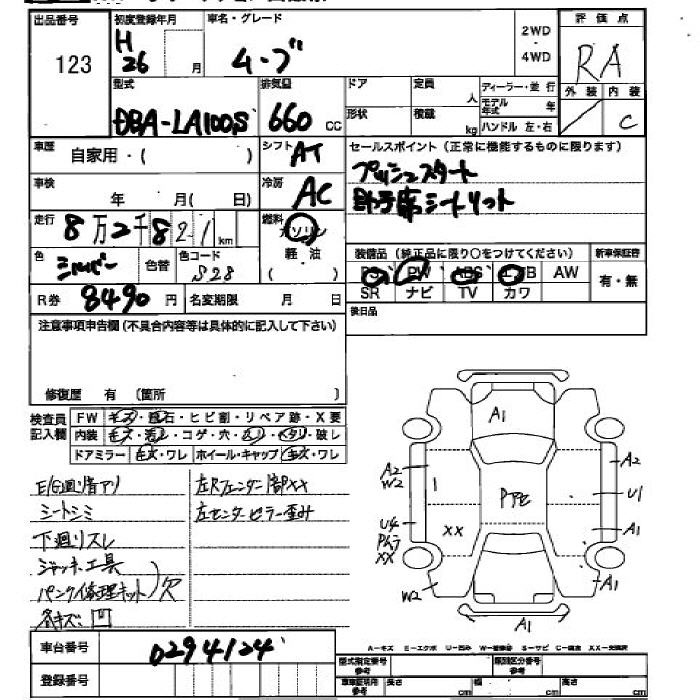 出品番号 初度登録年月 車名・グレード 2WD・4WD 評価点
123 H26 月 ムーブ RA
型式 排気量 ドア 定員 人 ディーラー・並行 外装 内装
DBA-LA100S 660 cc 形状 積載 kg モデル年式 年 C
ハンドル 左・右
車歴 自家用・( ) シフト AT セールスポイント(正常に機能するものに限ります)
プッシュスタート
車検 年 月( 日) 冷房 AC 助手席シートリフト
走行 8万2千821km 燃料 ガソリン 軽油
色 シルバー 色替 色コード S28 装備品(純正品に限り○をつけてください) 新車保証書
PS PW ABS エBB AW 有・無
R券 8490円 名変期限 月 日 SR ナビ TV カワ
注意事項申告欄(不具合内容等は具体的に記入して下さい) 後日品
修復歴 有 (箇所 )
検査員記入欄 FW キズ・飛石・ヒビ割・リペア跡・X要
内装 キズ・汚レ・コゲ・穴・スリ・ヘタリ・破レ
ドアミラー キズ・ワレ ホイール・キャップ キズ・ワレ
E/G廻リ音アリ
シートシミ
下廻リスレ
ジャッキ工具
パンク修理キット)欠
各キズ、凹
左Rフェンダー内部XX
左センターピラー歪み
A1
A2 W2
1
A2
U1
Pアセ
U4
XX
XX
A1
W2
A1
A1
A-キズ E-エクボ U-凹み W-補修跡 S-サビ C-腐食 XX-交換済
車台番号 0294124
登録番号
型式指定番号 参考 類別区分番号 参考
車車証明用 参考 長さ cm 幅 cm 高さ cm